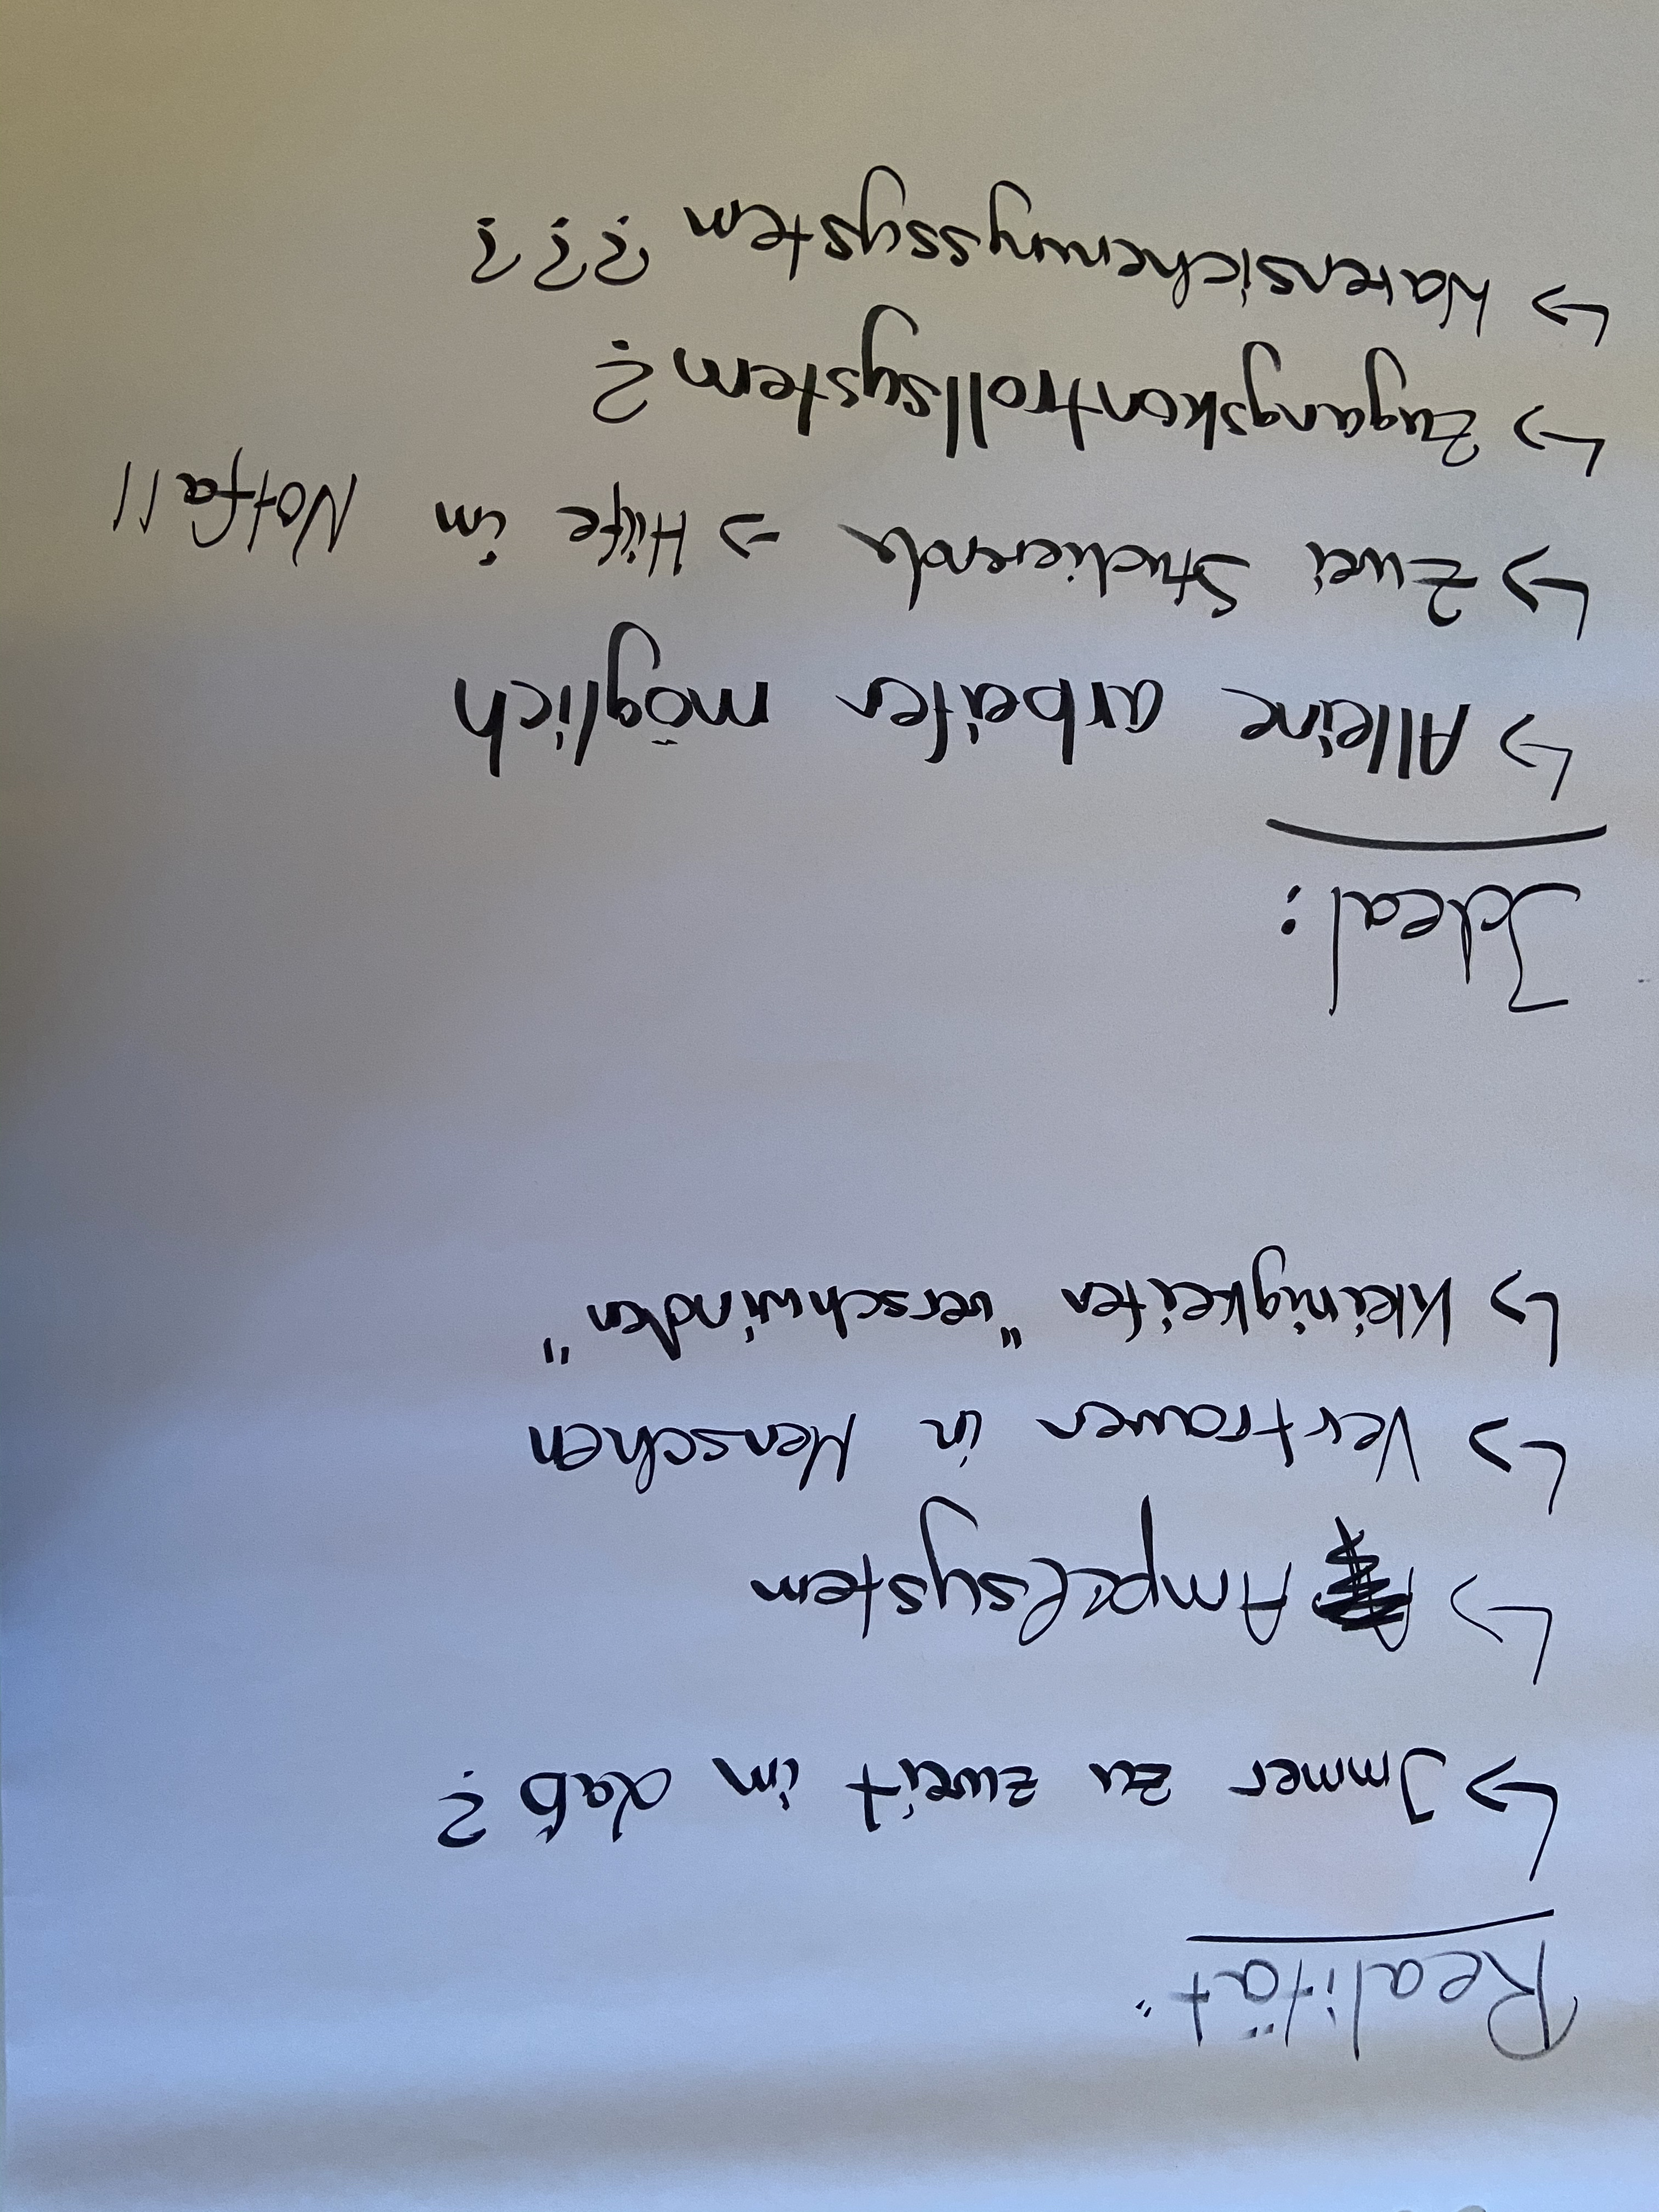 Realität"
↳ Immer zu zweit im Lab?
↳ Ampelsystem
↳ Vertrauen in Menschen
↳ Kleinigkeiten "verschwinden"
Ideal:
↳ Alleine arbeiten möglich
↳ Zwei Studierende -> Hilfe im Notfall
↳ Zugangskontrollsystem?
↳ Warensicherungssystem ???